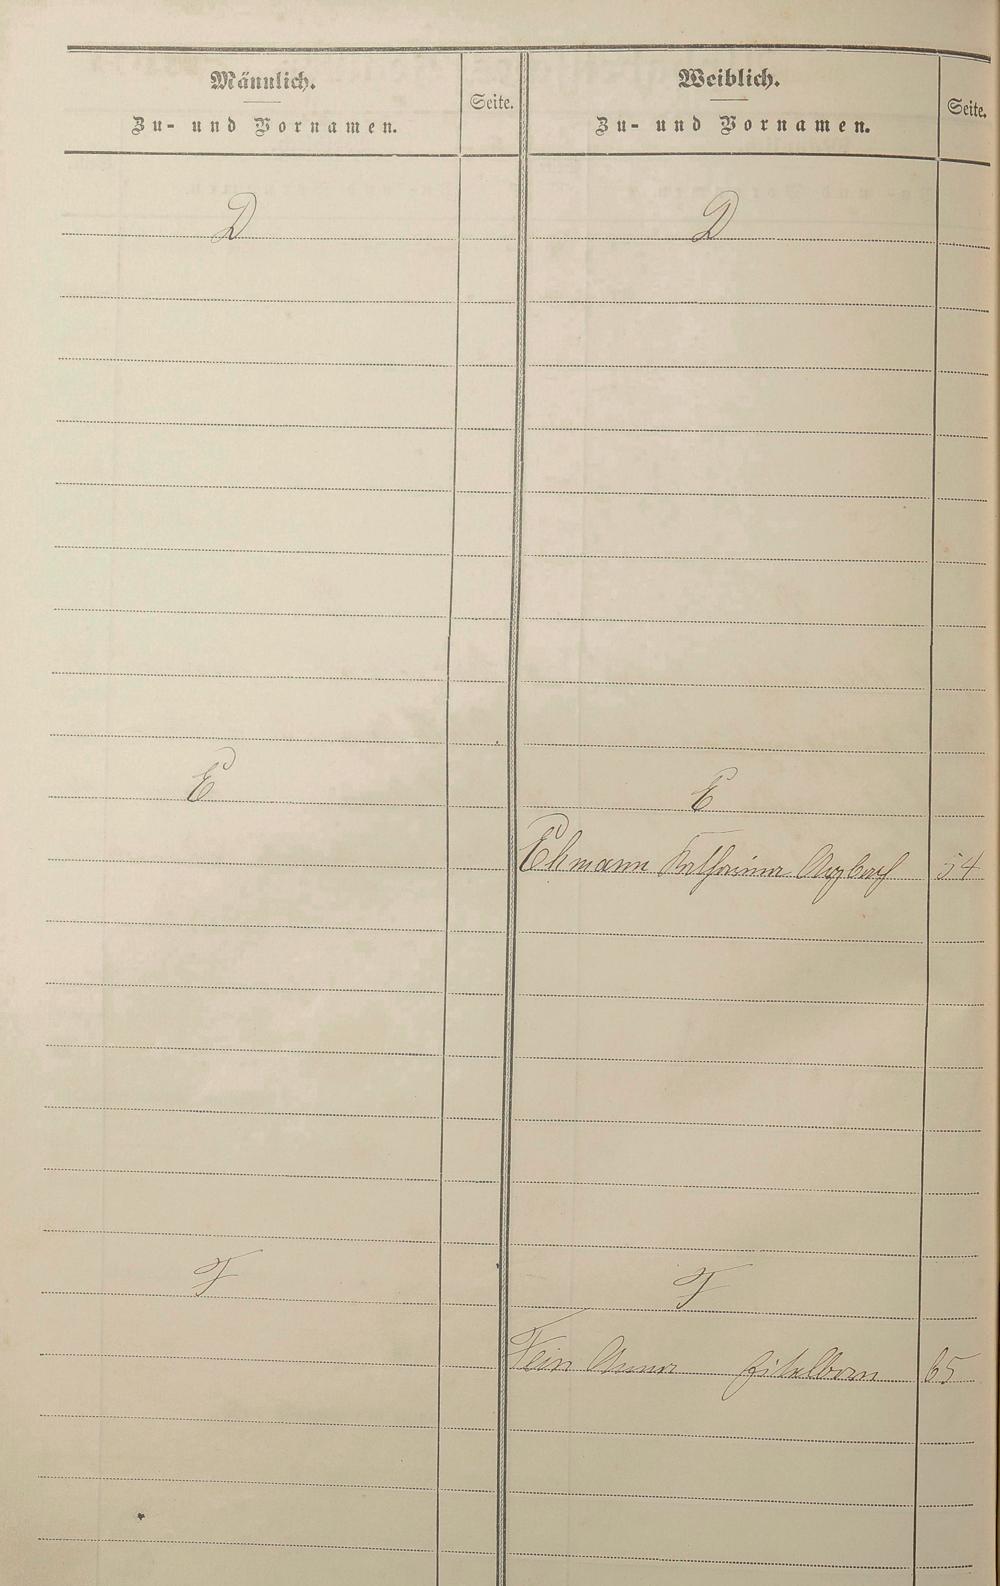 Männlich.
Zu- und Vornamen.
Seite.
Weiblich.
Zu- und Vornamen.
Seite.
D
D
E
E
Ehmann Katharina 54
F
F
Fein Anna 65